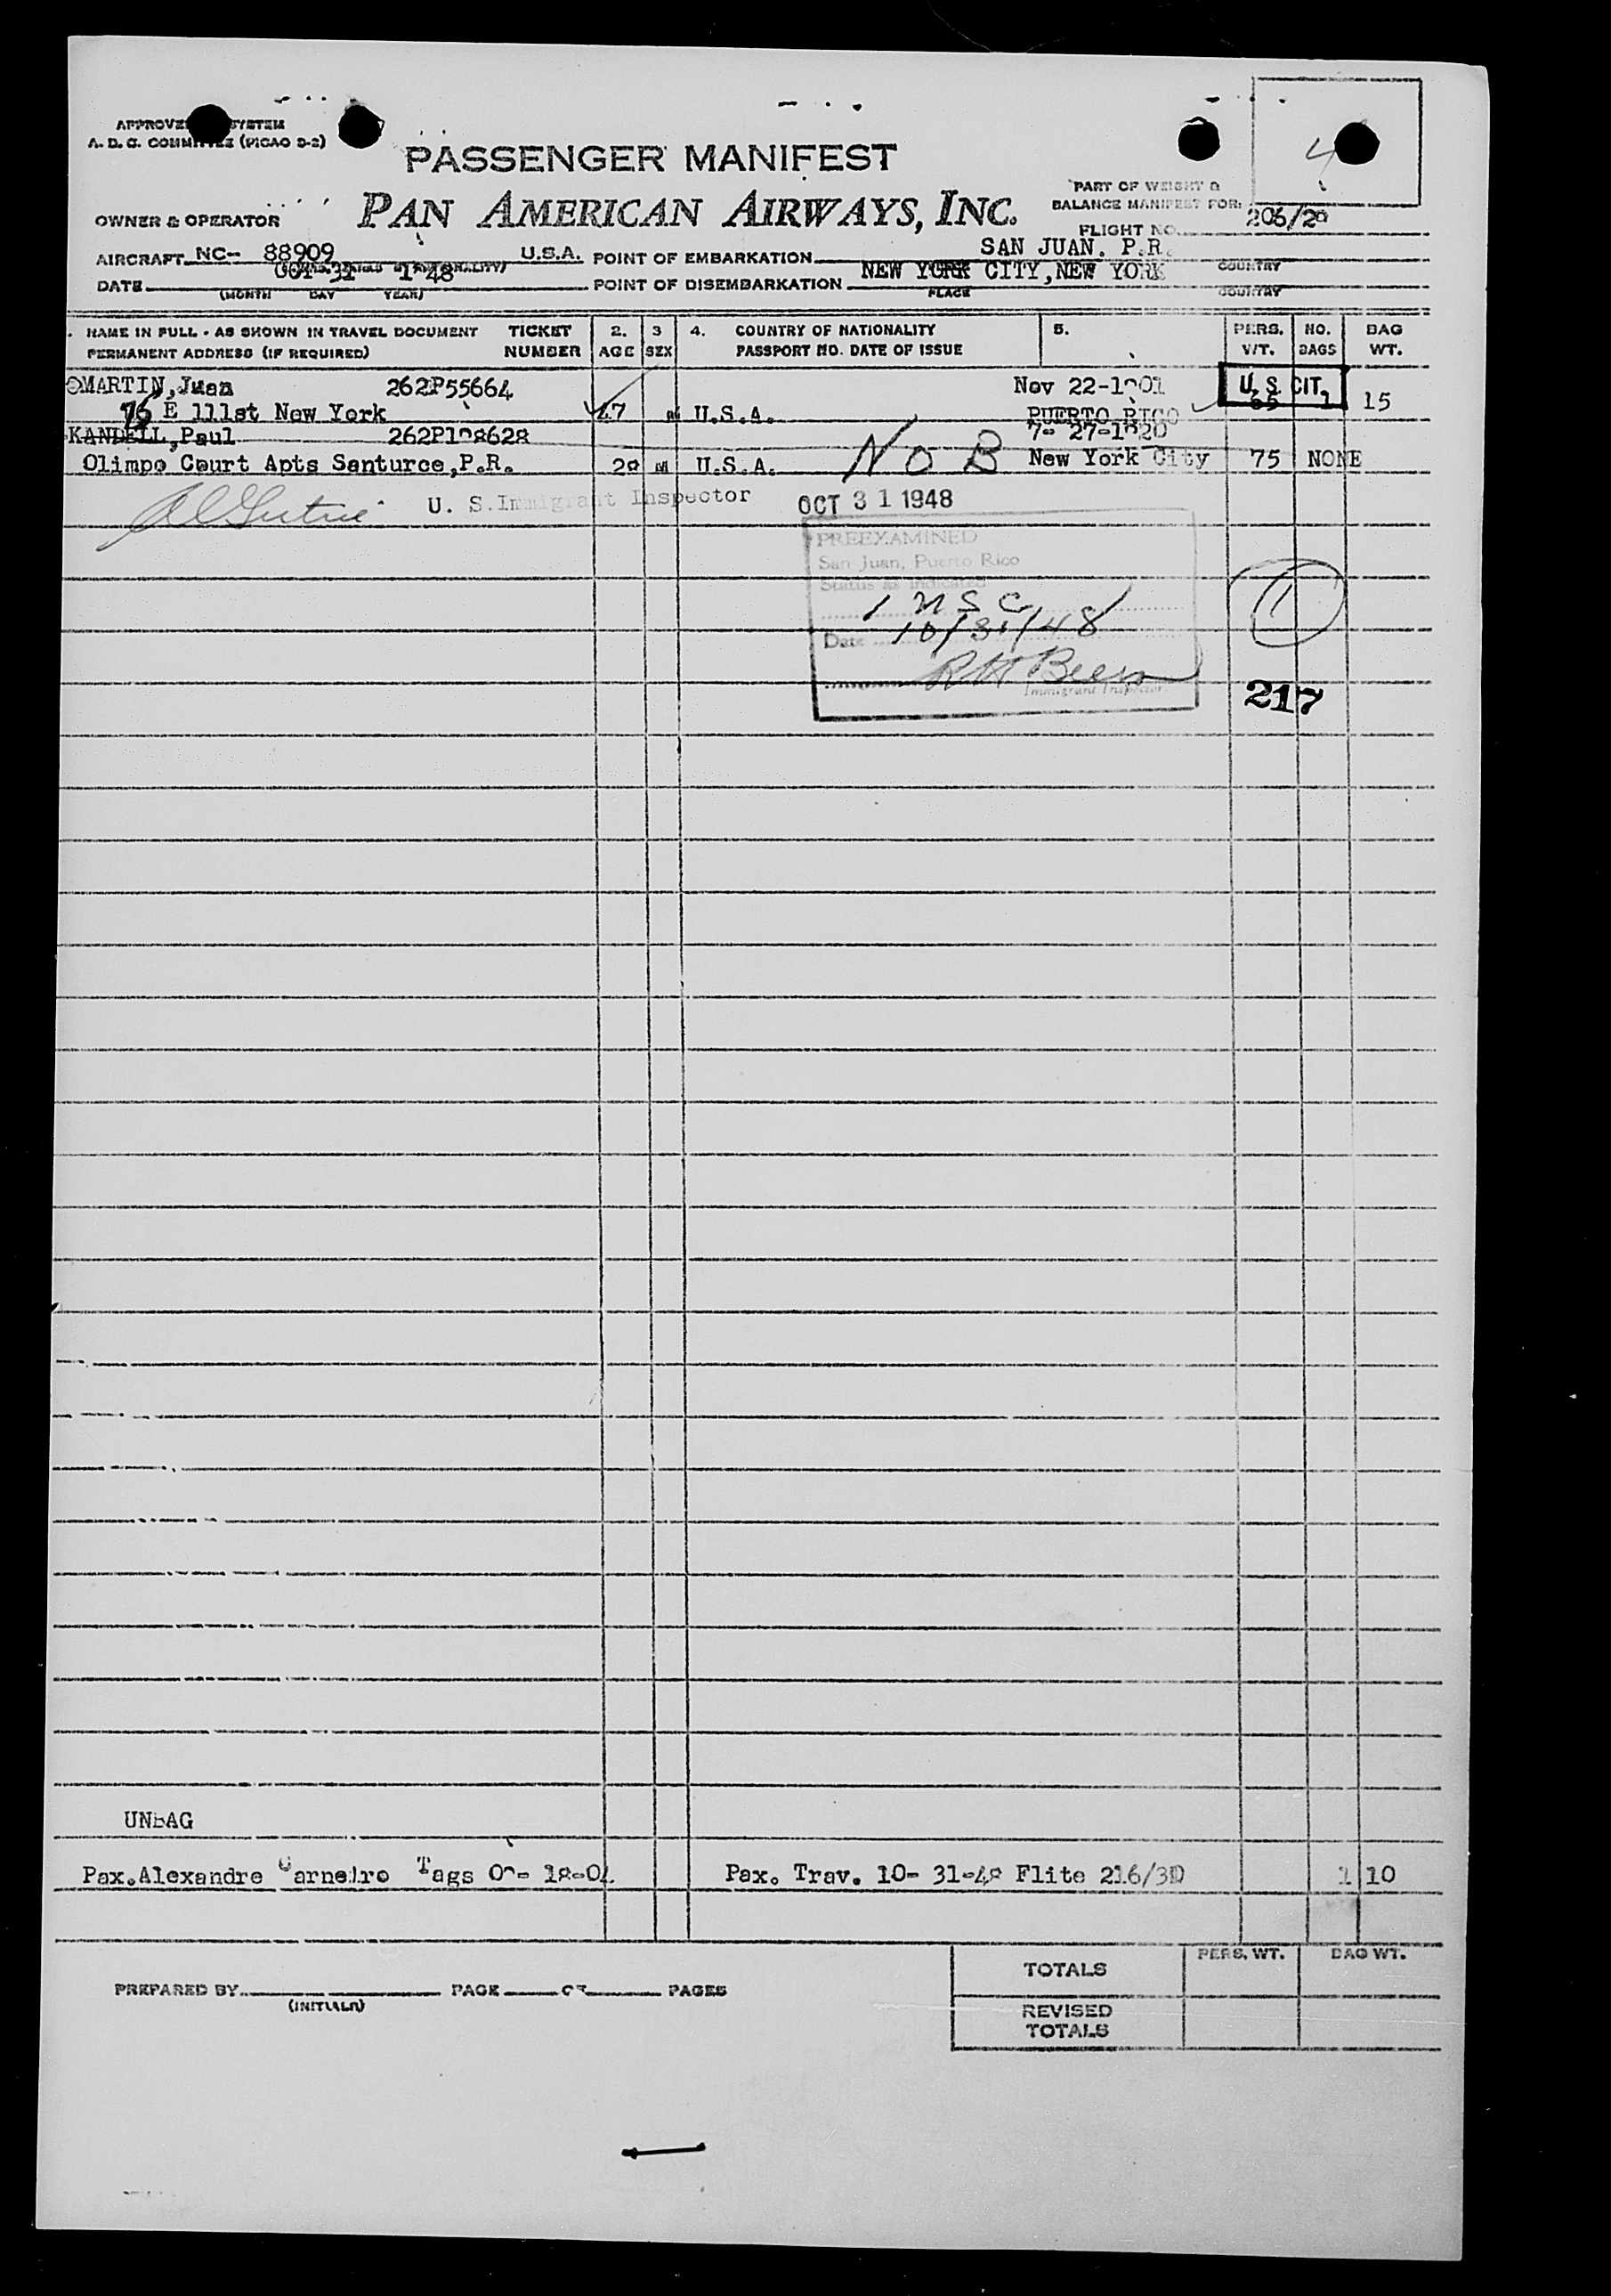 APPROVED SYSTEM
A. D. C. COMMITTEE (PICAO D-2)
PASSENGER MANIFEST
4
PART OF WEIGHT &
BALANCE MANIFEST FOR:
OWNER & OPERATOR PAN AMERICAN AIRWAYS, INC.
FLIGHT NO. 206/29
AIRCRAFT NC- 88909 U.S.A. POINT OF EMBARKATION SAN JUAN. P.R. COUNTRY
DATE OCT 31 1948 POINT OF DISEMBARKATION NEW YORK CITY, NEW YORK
(MONTH DAY YEAR) PLACE COUNTRY
NAME IN FULL - AS SHOWN IN TRAVEL DOCUMENT TICKET 2. 3 4. COUNTRY OF NATIONALITY 5. PERS. NO. BAG
PERMANENT ADDRESS (IF REQUIRED) NUMBER AGE SEX PASSPORT NO. DATE OF ISSUE WT. BAGS WT.
MARTIN, Juan 262P55664 Nov 22-1901 U. S. CIT.
E 111st New York 47 M U.S.A. PUERTO RICO 1 15
KANDELL, Paul 262P198628 7- 27-1920
Olimpo Court Apts Santurce, P.R. 28 M U.S.A. NOB New York City 75 NONE
U. S. Immigrant Inspector OCT 31 1948
PREEXAMINED
San Juan, Puerto Rico
Status as indicated
1 USC
Date 10/31/48
1
Immigrant Inspector
217
UNBAG
Pax. Alexandre Carneiro Tags Pax. Trav. 10- 31-48 Flite 216/3D 1 10
TOTALS PERS. WT. BAG WT.
PREPARED BY PAGE OF PAGES
(INITIALS)
REVISED
TOTALS